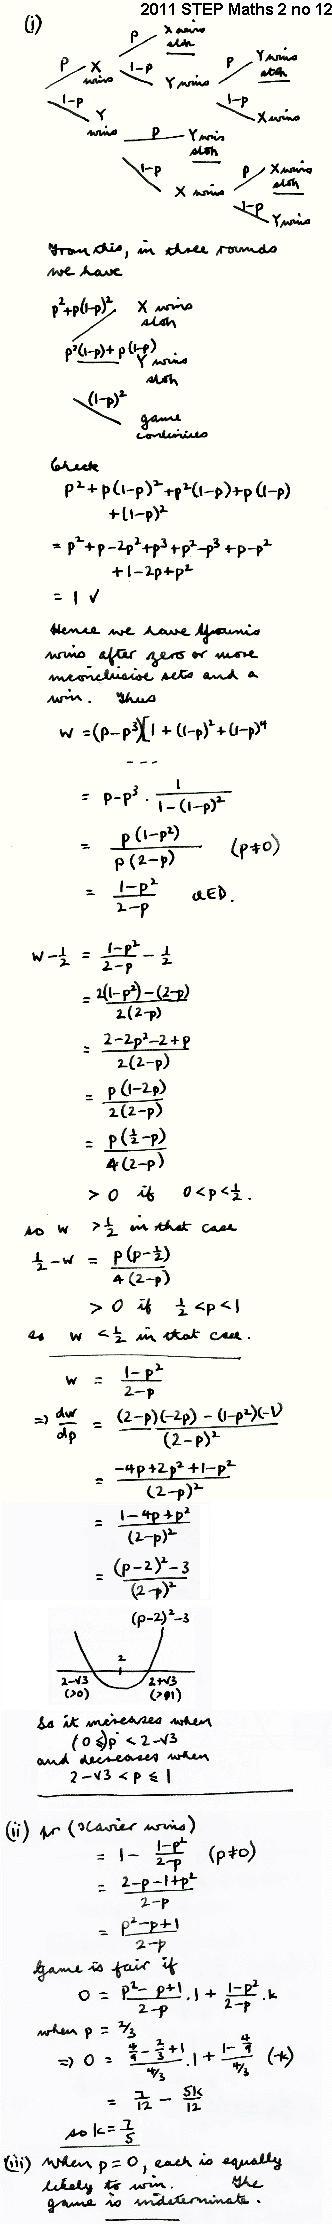 2011 STEP Maths 2 no 12
(i)
p X wins p X wins stoh
1-p Y wins p Y wins stoh
1-p X wins
1-p Y wins p Y wins stoh
1-p X wins p X wins stoh
1-p Y wins
From this, in three rounds
we have
p²+p(1-p)² X wins
stoh
p²(1-p)+p(1-p) Y wins
stoh
(1-p)² game
continues
Check
p²+p(1-p)²+p²(1-p)+p(1-p)
+(1-p)²
= p²+p-2p²+p³+p²-p³+p-p²
+1-2p+p²
= 1 ✓
Hence we have Younis
wins after zero or more
inconclusive sets and a
win. Thus
W =(p-p³)[1+(1-p)²+(1-p)⁴
---
= p-p³ . 1/(1-(1-p)²)
= p(1-p²)/p(2-p) (p≠0)
= (1-p²)/(2-p) QED.
W-½ = (1-p²)/(2-p) - ½
= (2(1-p²)-(2-p))/2(2-p)
= (2-2p²-2+p)/2(2-p)
= p(1-2p)/2(2-p)
= p(½-p)/4(2-p)
> 0 if 0<p<½.
so W >½ in that case
½-W = p(p-½)/4(2-p)
> 0 if ½<p<1
so W <½ in that case.
W = (1-p²)/(2-p)
⇒ dw/dp = ((2-p)(-2p)-(1-p²)(-1))/(2-p)²
= (-4p+2p²+1-p²)/(2-p)²
= (1-4p+p²)/(2-p)²
= ((p-2)²-3)/(2-p)²
(p-2)²-3
2
2-√3 2+√3
(>0) (>1)
So it increases when
(0≤)p<2-√3
and decreases when
2-√3<p≤1
(ii) pr (Xavier wins)
= 1- (1-p²)/(2-p) (p≠0)
= (2-p-1+p²)/(2-p)
= (p²-p+1)/(2-p)
Game is fair if
0 = (p²-p+1)/(2-p) .1+ (1-p²)/(2-p) .k
when p = 2/3
⇒ 0 = (4/9-2/3+1)/(4/3) .1+ (1-4/9)/(4/3) (-k)
= 7/12 - 5k/12
so k= 7/5
(iii) When p=0, each is equally
likely to win. The
game is indeterminate.